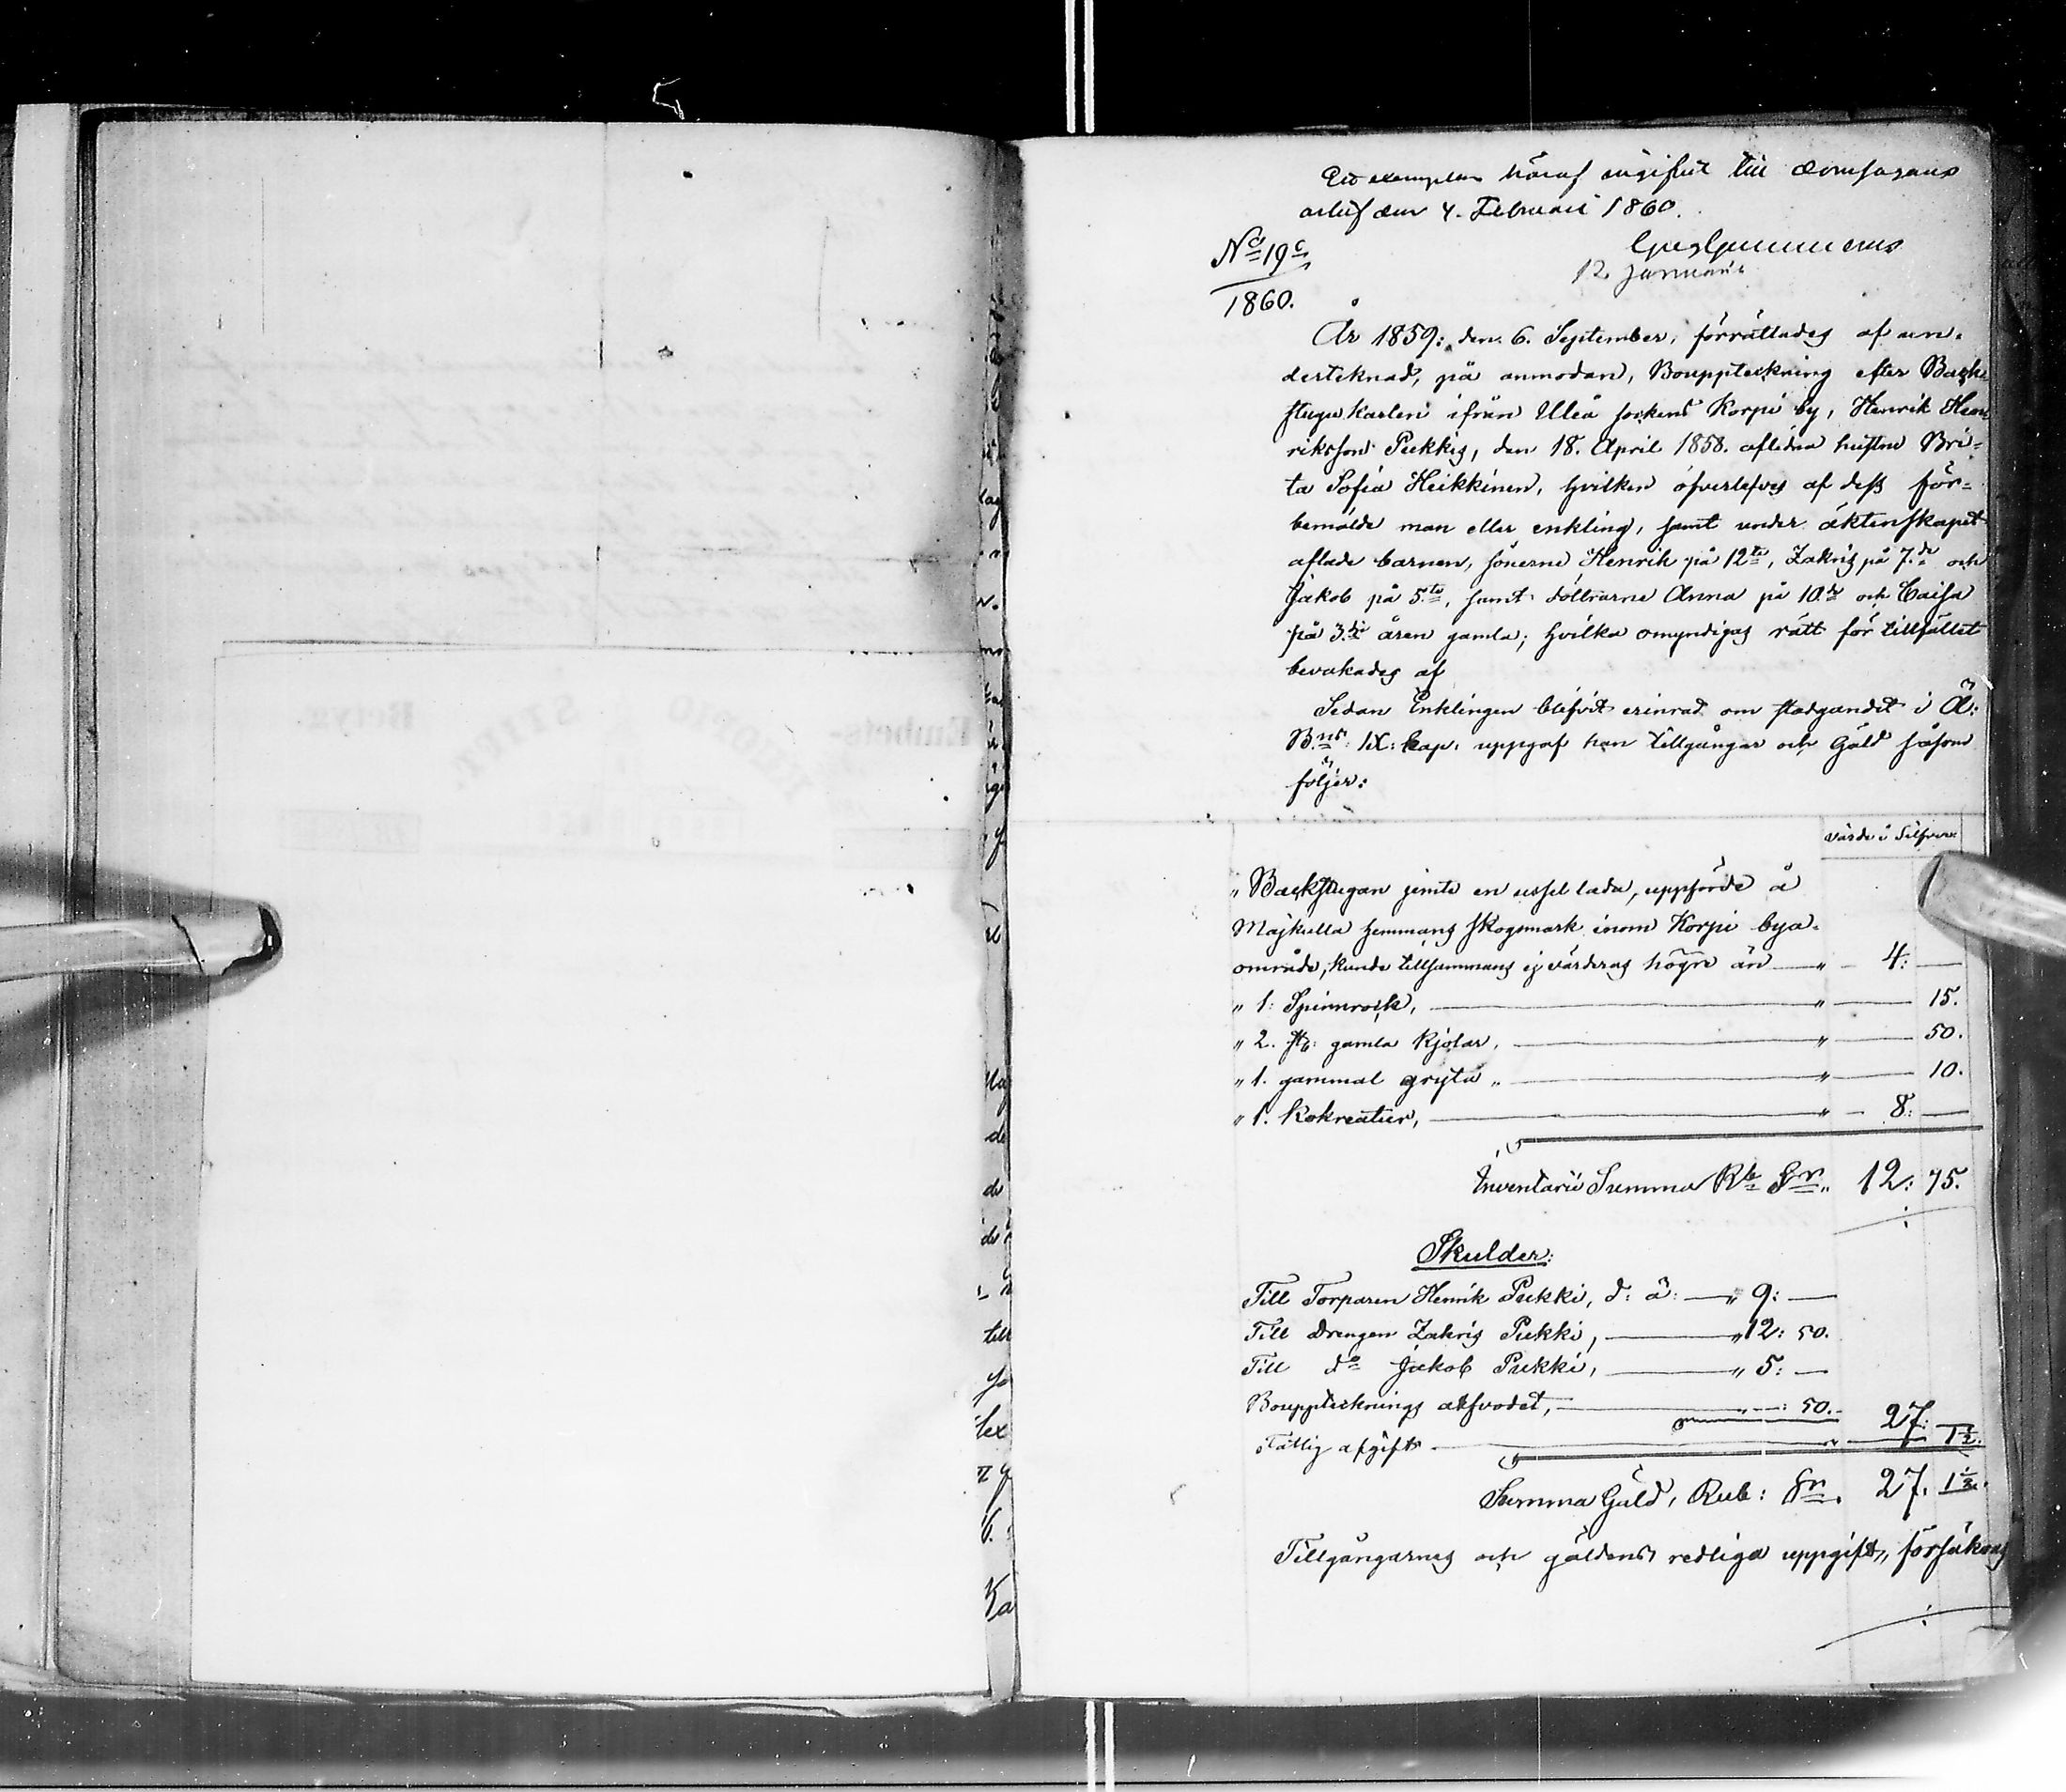 Ett exemplar häraf ingifvit till domsagans
arkif den 4. Februari 1860.
No 19 c
1860.
12 Januari
År 1859: den 6. September, förrättades af un-
derteknad, på anmodan, Bouppteckning efter Back
stugu karlen ifrån Uleå sockens Korpi by, Henrik Hen
riksson Pukkis, den 18. April 1858. aflidna hustru Bri-
ta Sofia Heikkinen, hvilken öfverlefves af dess för-
bemälde man eller enkling, samt under äktenskapet
aflade barnen, sönerne Henrik på 12te, Zakris på 7.de och
Jakob på 5.te, samt döttrarne Anna på 10.de och Caisa
på 3.dje åren gamla; hvilka omyndigas rätt för tillfället
bevakades af
Sedan Enklingen blifvit erinrad om stadgandet i Ä:
B.ns IX: kap: uppgaf han tillgångar och Gäld såsom
följer:
Värde i Silfver
" Backstugan jemte en ussel lada, uppförde å
Majkulla hemmans skogsmark inom Korpi bya-
område, kunde tillsammans ej värderas högre än — " — 4: —
" 1: Spinnrock, — " — 15.
" 2. st: gamla kjolar, — " — 50.
" 1. gammal gryta " — " — 10.
" 1. Kokreatur, — " — 8: —
Inventarii Summa Rb Sr. " 12: 75.
Skulder:
Till Torparen Henrik Pukki, d: ä: — " 9: —
Till Drengen Zakris Pukki, — " 12: 50.
Till do Jakob Pukki, — " 5: —
Bouppteknings arfvodet, — " —: 50. 27: —
Fattig afgift — " — 1½.
Summa Gäld, Rub: Sr. 27. 1½.
Tillgångarnes och gäldens redliga uppgift, försäkras